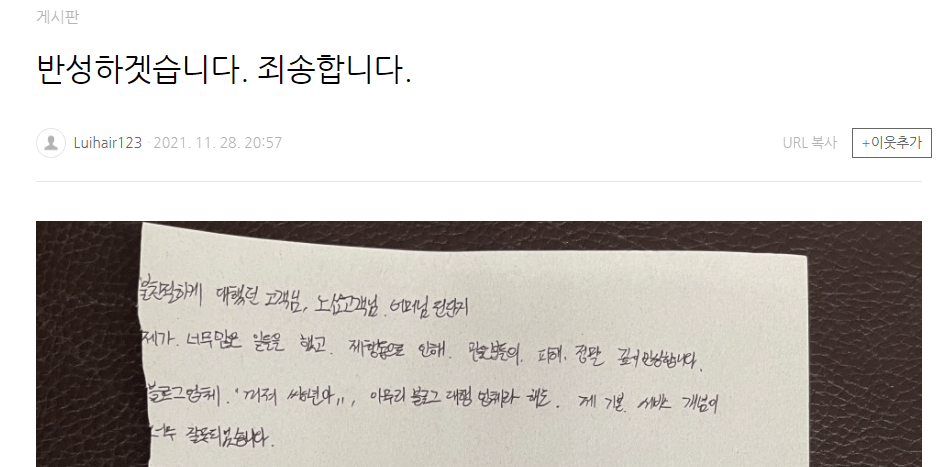 게시판
반성하겟습니다. 죄송합니다.
Luihair123 · 2021. 11. 28. 20:57
URL 복사
+이웃추가
불친절하게 대했던 고객님, 노쇼고객님. 어머님 전단지
제가. 너무많은 일들을 했고. 제행동으로 인해. 많은분들의. 피해. 정말 깊이반성합니다.
블로그업체. "꺼져 쌍년아,,, 아무리 블로그 대행 업체라 해도. 제 기본 서비스 개념이
너무 잘못되었습니다.